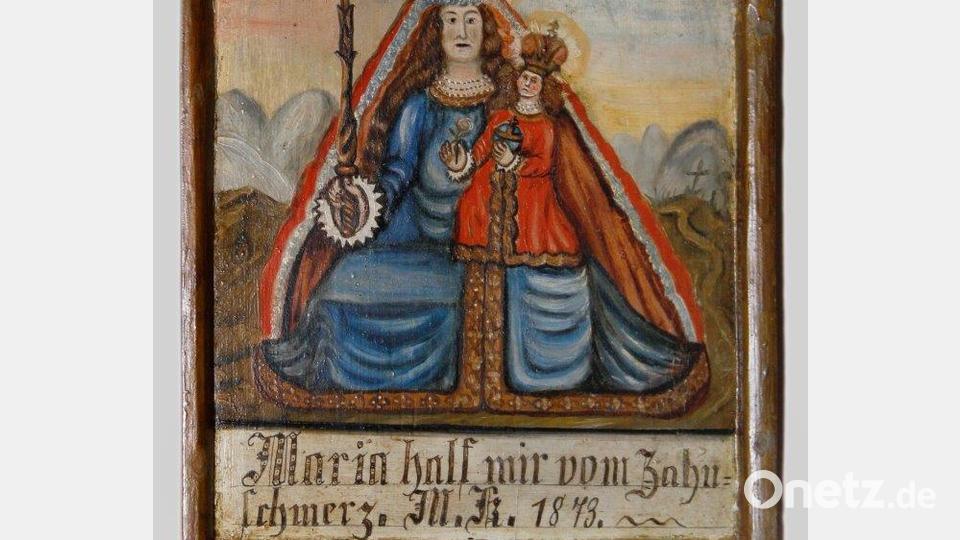 Maria half mir vom Zahn=
schmerz. M. K. 1873.
Onetz.de